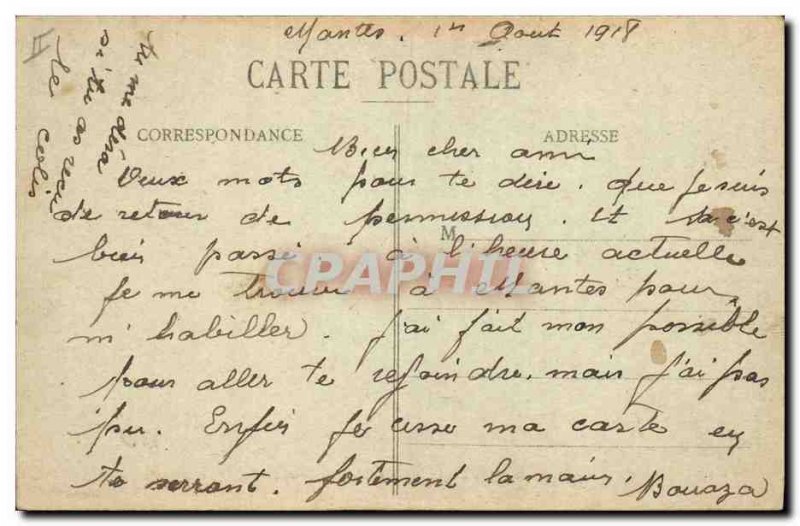 Mantes. 1er Aout 1918
CARTE POSTALE
CORRESPONDANCE
ADRESSE
M
Bien cher ami
Deux mots pour te dire. que je suis
de retour de permission. Et sa c'est
bien passé à l'heure actuelle
je me trouve à Mantes pour
m'habiller. J'ai fait mon possible
pour aller te rejoindre. mais j'ai pas
pu. Enfin je cesse ma carte en
te serrant. fortement la main.
Bouaza
tu me dira
si tu as reçu
le colis
CPAPHIL